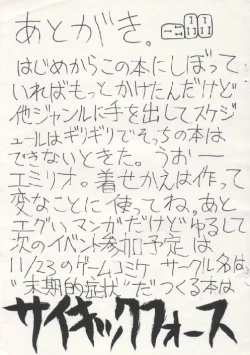 あとがき。
はじめからこの本にしぼって
いればもっとかけたんだけど
他ジャンルに手を出してスケジ
ュールはギリギリでそっちの本は
できないときた。うおー
エミリオ。着せかえは作って
変なことに使ってね。あと
エグいマンガだけどゆるして
次のイベント参加予定は
11/23のゲームコミケ サークル名は
"末期的症状"だ つくる本は
サイキックフォース